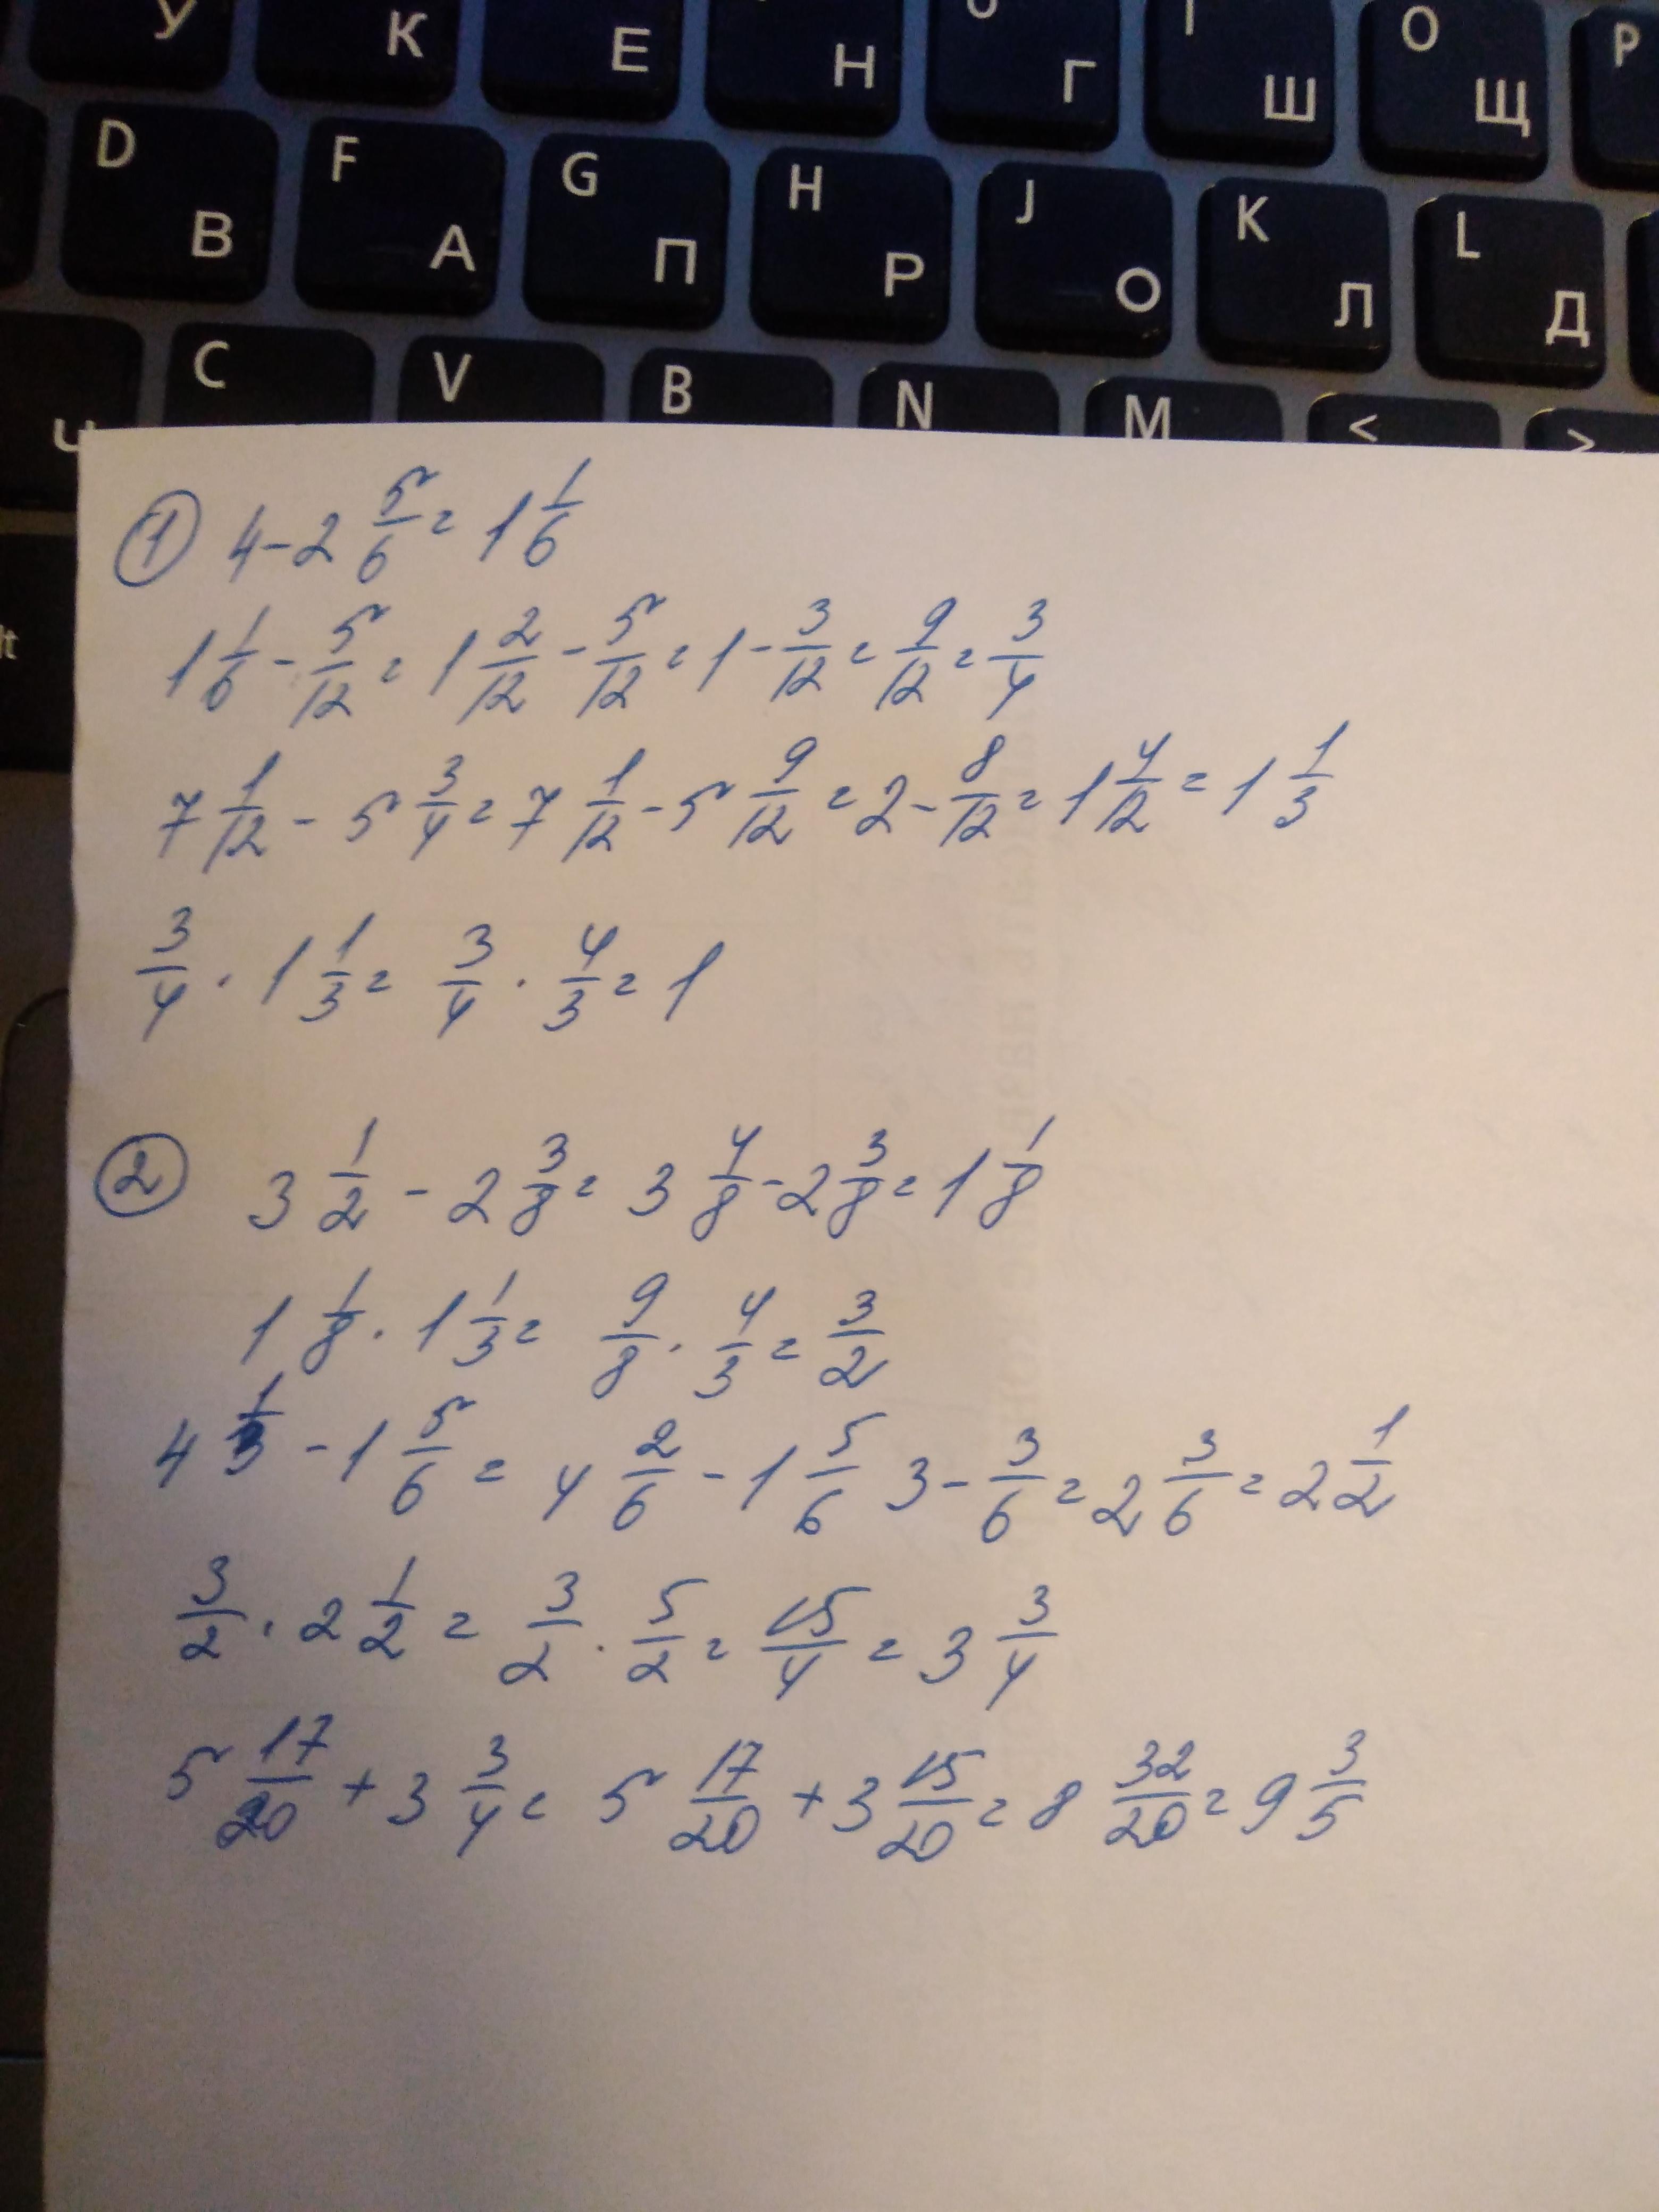 У К Е Н Г Ш O Щ P
D В F А G П H Р J О K Л L Д
Ч C V B N M < >
① 4 - 2 5/6 = 1 1/6
1 1/6 - 5/12 = 1 2/12 - 5/12 = 1 - 3/12 = 9/12 = 3/4
7 1/12 - 5 3/4 = 7 1/12 - 5 9/12 = 2 - 8/12 = 1 4/12 = 1 1/3
3/4 · 1 1/3 = 3/4 · 4/3 = 1
② 3 1/2 - 2 3/8 = 3 4/8 - 2 3/8 = 1 1/8
1 1/8 · 1 1/3 = 9/8 · 4/3 = 3/2
4 1/3 - 1 5/6 = 4 2/6 - 1 5/6 3 - 3/6 = 2 3/6 = 2 1/2
3/2 · 2 1/2 = 3/2 · 5/2 = 15/4 = 3 3/4
5 17/20 + 3 3/4 = 5 17/20 + 3 15/20 = 8 32/20 = 9 3/5